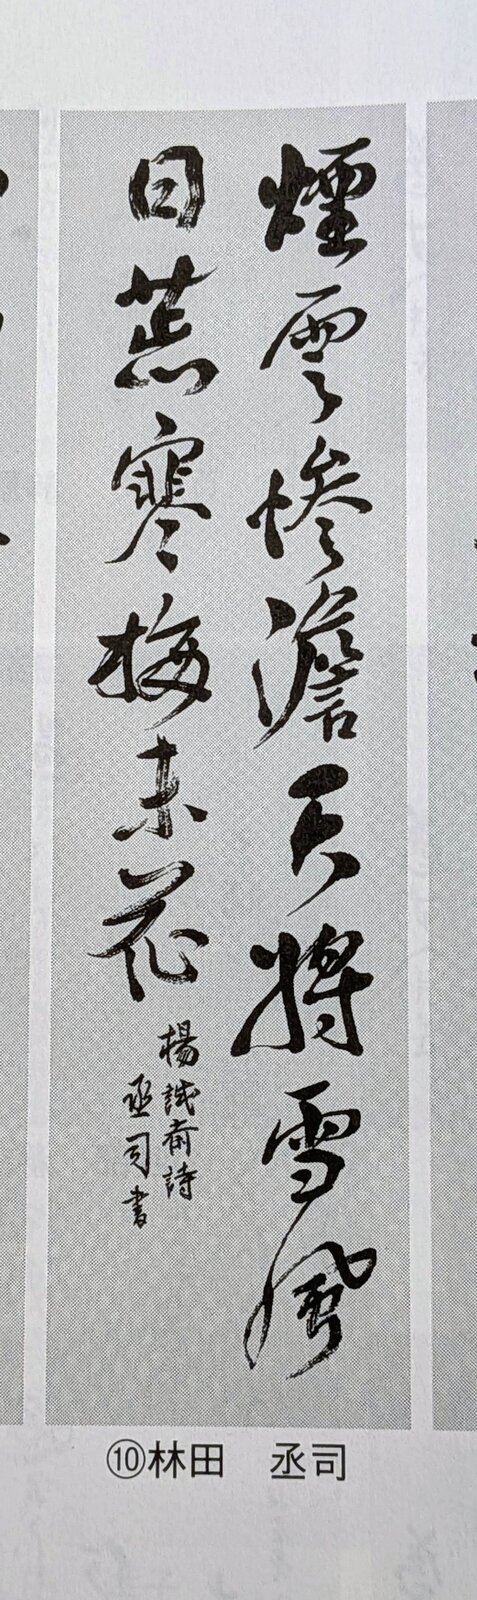 煙雲惨澹天将雪風
日荒寒梅未花
楊誠斎詩
丞司書
⑩林田　丞司